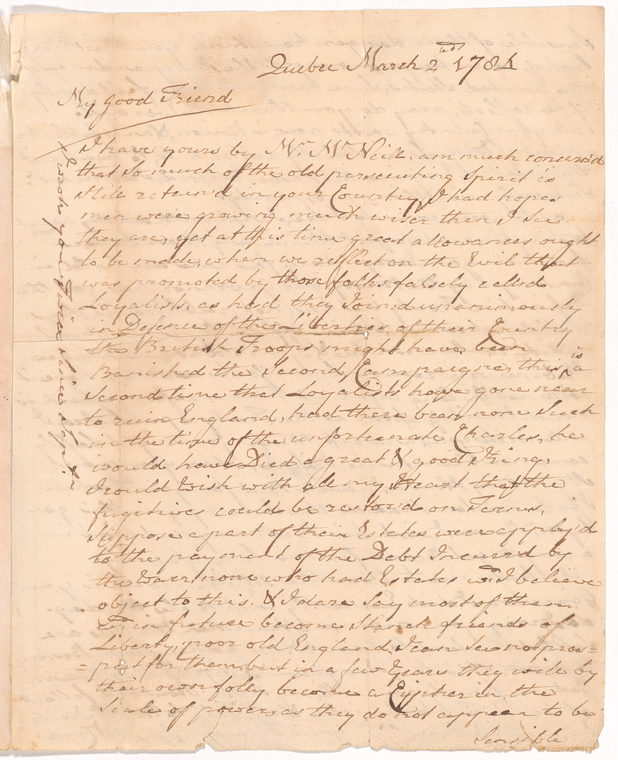 Quebec March 2nd 1784
My good Friend
I have yours by Mr. McNeill, am much concern'd
that so much of the old persecuting spirit is
still retain'd in your Country, I had hopes
men were growing much wiser then I see
they are, yet at this time great allowances ought
to be made, when we reflect on the Evil that
was promoted by those folks falsely called
Loyalists, as had they Joind unanimously
in Defence of the Liberties of their Country
the British Troops might have been
Banished the Second Campaigne, this is a
Second time that Loyalists have gone near
to ruin England, had there been none such
in the time of the unfortunate Charles, he
would have Died a great & good King,
I would Wish with all my Heart that the
fugitives could be restor'd on Terms,
suppose a part of their Estates were apply'd
to the payment of the Debt Incurrd by
the Warr, none who had Estates wd I believe
object to this, & I dare say most of them
wd in future become Stanch friends of
Liberty, poor old England I can See no pros=
=pect for them but in a few Years they will by
their own folley become a Cypher in the
Scale of powers as they do not appear to be
Sensible
I wrote you twice since Sepr